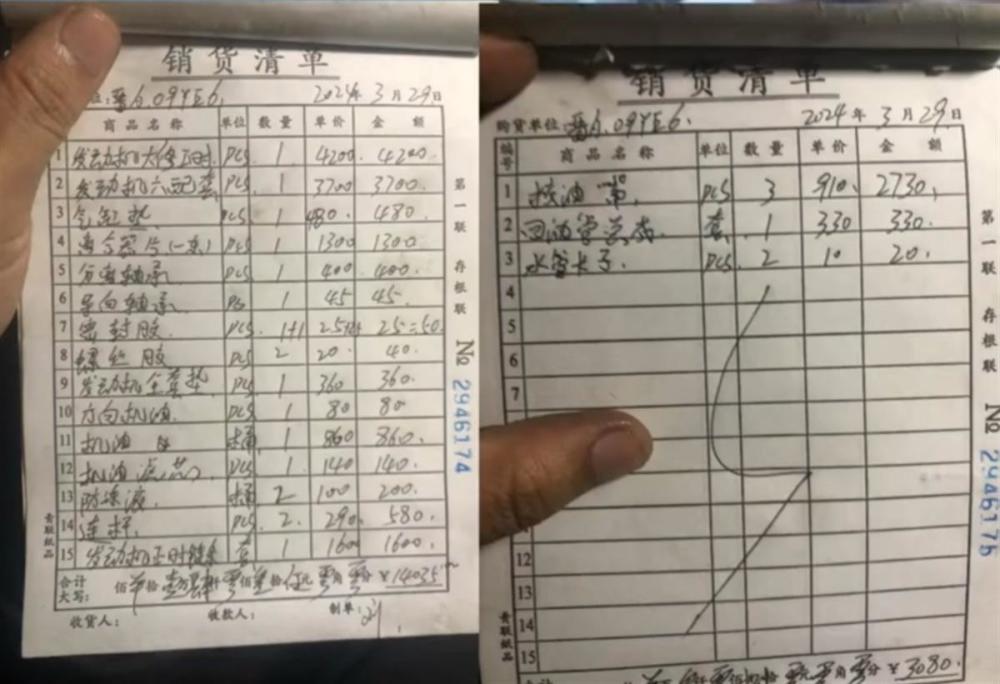 销货清单
晋A.09YE6. 2024年3月29日
商品名称 单位 数量 单价 金额
1 发动机大修工时 PCS 1 4200 4200.
2 发动机六配套 PCS 1 3700 3700.
3 气缸垫 PCS 1 480. 480.
4 离合器片(一套) PCS 1 1300 1300.
5 分离轴承 PCS 1 400. 400.
6 导向轴承 PCS 1 45 45.
7 密封胶 PCS 1+1 25 25=50.
8 螺丝胶 PCS 2 20. 40.
9 发动机全套垫 PCS 1 360 360.
10 方向机油 PCS 1 80 80
11 机油 桶 1 860 860.
12 机油滤芯 PCS 1. 140 140.
13 防冻液 桶 2 100 200.
14 连杆 PCS 2. 290. 580.
15 发动机正时链条 套 1 1600 1600.
合计大写: 佰 拾壹万肆仟零佰叁拾伍元零角零分 ¥14035
收货人: 收款人: 制单:
第一联 存根联 № 2946174
青联纸品
销货清单
购货单位:晋A.09YE6. 2024年3月29日
编号 商品名称 单位 数量 单价 金额
1 油 PCS 3 910. 2730.
2 回油管总成 套 1 330 330.
3 水管卡子. PCS 2 10 20.
4
5
6
7
12
13
14
15
¥3080.
第一联 存根联 № 2946175
青联纸品